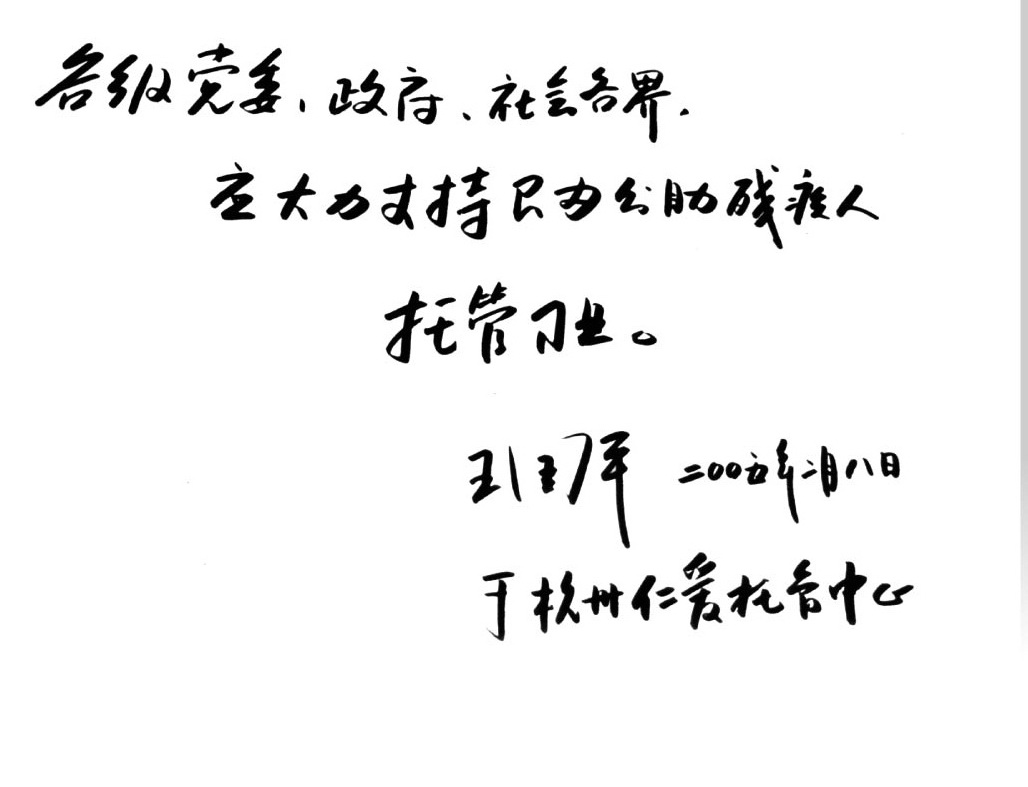 各级党委、政府、社会各界.
应大力支持民办公助残疾人
托管事业。
二00五年二月八日
于杭州仁爱托管中心